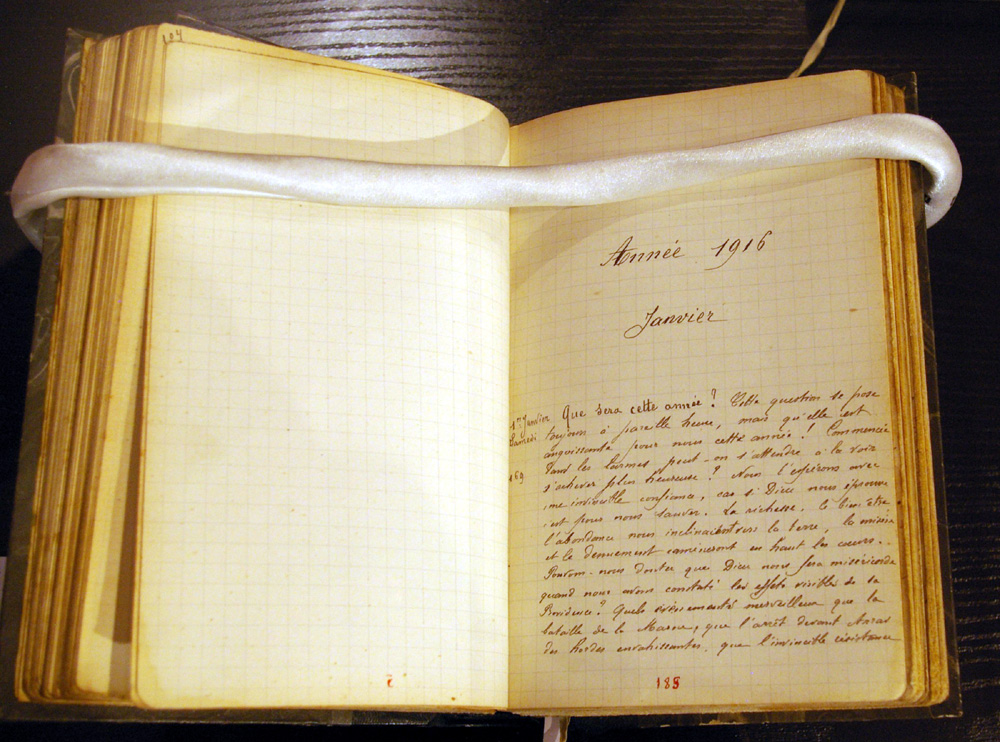 104
Année 1916
Janvier
1er Janvier
Samedi
169
Que sera cette année ? Cette question se pose
toujours à pareille heure, mais qu'elle est
angoissante pour nous cette année ! Commencée
dans les larmes peut-on s'attendre à la voir
s'achever plus heureuse ? Nous l'espérons avec
une invincible confiance, car si Dieu nous éprouve
c'est pour nous sauver. La richesse, le bien être
l'abondance nous inclinaient vers la terre, la misère
et le dénuement ramèneront en haut les cœurs..
Pouvons-nous douter que Dieu nous fera miséricorde
quand nous avons constaté les effets visibles de sa
Providence ? Quels évènements merveilleux que la
bataille de la Marne, que l'arrêt devant Arras
des hordes envahissantes, que l'invincible résistance
185